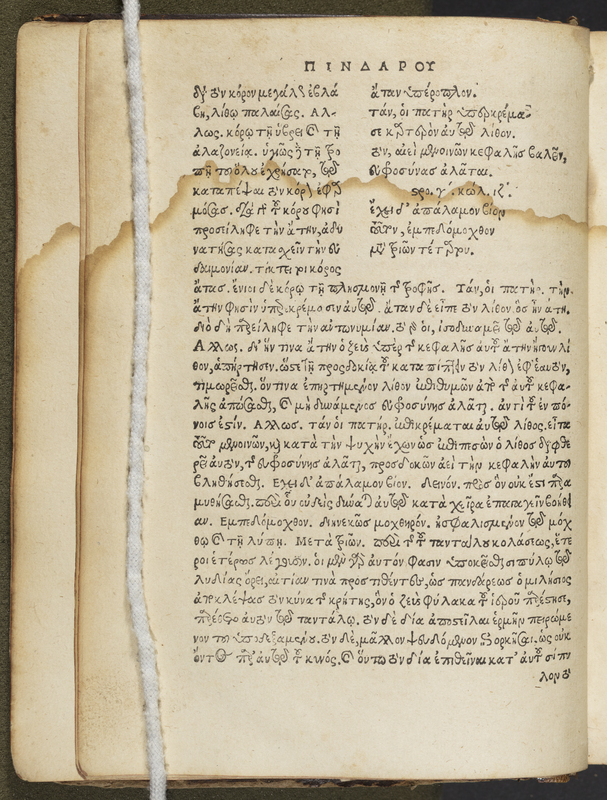 κόρον μεγάλως ἔβλα
βη, λίθῳ παλαίσας. Αλ-
λως. κόρῳ τῇ ὕβρει καὶ τῇ
ἀλαζονείᾳ. τῇ τρο
πῇ τοῦ ὅλου ἐχρήσατο, τῷ
καταπέψαι τὸν κόρον ἐφαρ
μόσας. διὰ τοῦ κόρου φησὶ
προσείληφε τὴν ἄτην, ἀδυ
νατήσας κατασχεῖν τὴν εὐ
δαιμονίαν. τίκτει γὰρ κόρος
ΠΙΝΔΑΡΟΥ
ἄταν ὑπέροπλον.
τάν, οἱ πατὴρ ὑπερκρέμα-
σε καρτερὸν αὐτῷ λίθον.
τὸν, αἰεὶ μενοινῶν κεφαλῆς βαλεῖν,
εὐφροσύνας ἀλᾶται.
στρο. γ΄. κώλ. ιζ΄.
ἔχει δ' ἀπάλαμον βίον
τοῦτον, ἐμπεδόμοχθον
μετὰ τριῶν τέταρτον.
ἄτας. ἔνιοι δὲ κόρῳ τῇ πλησμονῇ τῆς τροφῆς. Τάν, οἱ πατήρ. τὴν
ἄτην φησὶν ὑπερεκρέμασεν αὐτῷ. ἄταν δὲ εἶπε τὸν λίθον. ὃς ἦν ἄτη.
διὸ δὴ παρείληφε τὴν ἀντωνυμίαν. τὸ οἱ, ἰσοδυναμεῖ τῷ αὐτῷ.
Αλλως. δι' ἥν τινα ἄτην ὁ ζεὺς ὑπὲρ τῆς κεφαλῆς αὐτοῦ ἄτην ἤγουν λί
θον, ἀπήρτησεν. ὥστε τῇ προσδοκίᾳ τοῦ καταπεσεῖν τὸν λίθον ἐφ' ἑαυτὸν,
τιμωρεῖσθαι. ὅντινα ἐπηρτημένον λίθον ἐπιθυμῶν ἀπὸ τῆς αὐτοῦ κεφα-
λῆς ἀπώσασθαι, καὶ μὴ δυνάμενος εὐφροσύνης ἀλᾶται. ἀντὶ τοῦ ἐν πό-
νοις ἐστίν. Αλλως. τάν οἱ πατήρ. ἐπικρέμαται αὐτῷ λίθος. εἶτα
τοῦτον μενοινῶν, καὶ κατὰ τὴν ψυχὴν ἔχων ὡς ἐπιπεσὼν ὁ λίθος διαφθε
ρεῖ αὐτὸν, τῆς εὐφροσύνης ἀλᾶται, προσδοκῶν ἀεὶ τὴν κεφαλὴν αὐτοῦ
βληθήσεσθαι. Εχει δ' ἀπάλαμον βίον. δεινόν. πρὸς ὃν οὐκ ἔστι παλα
μήσασθαι. περὶ οὗ οὐδεὶς δύναται αὐτῷ κατὰ χεῖρα ἐπαγαγεῖν βοήθει
αν. Εμπεδόμοχθον. διηνεκῶς μοχθηρόν. ἠσφαλισμένον τῷ μόχ
θῳ καὶ τῇ λύπῃ. Μετὰ τριῶν. περὶ τῆς τοῦ ταντάλου κολάσεως, ἕτε
ροι ἑτέρως λέγουσιν. οἱ μὲν γὰρ αὐτόν φασιν ὑποκεῖσθαι σιπύλῳ τῷ
λυδίας ὄρει, αἰτίαν τινὰ προστιθέντες, ὡς πανδάρεως ὁ μιλήσιος
ἀποκλέψας τὸν κύνα τῆς κρήτης, ὃν ὁ ζεὺς φύλακα τοῦ ἱεροῦ παρέστησε,
παρέθετο αὐτὸν τῷ ταντάλῳ. τὸν δὲ δία ἀποστεῖλαι ἑρμῆν πειρώμε
νον τοῦ ὑποδεξαμένου. τὸν δὲ, μᾶλλον ψευδόμενον ἐξορκῆσαι, ὡς οὐκ
ὄντος παρ' αὐτῷ τοῦ κυνός. καὶ οὕτω τὸν δία ἐπιθεῖναι κατ' αὐτοῦ σίπυ
λον τὸ